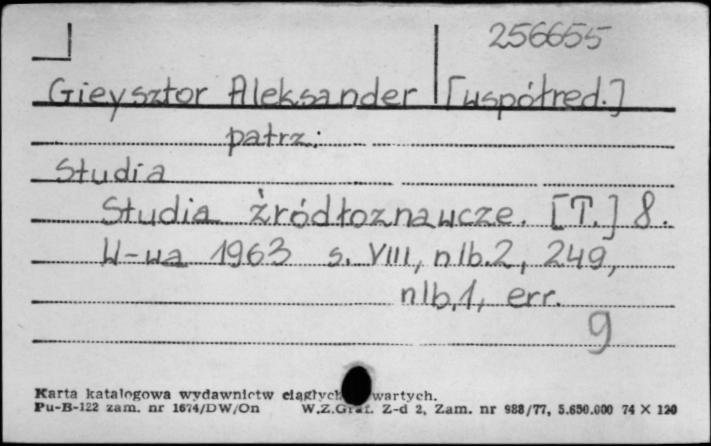 256655
Gieysztor Aleksander [współred.]
patrz:
Studia
Studia źródłoznawcze. [T.] 8.
W-wa 1963 s. VIII, nlb.2, 249,
nlb.1, err.
9
Karta katalogowa wydawnictw ciągłych wartych.
Pu-B-122 zam. nr 1674/DW/On W.Z.Graf. Z-d 2, Zam. nr 988/77, 5.650.000 74 X 120